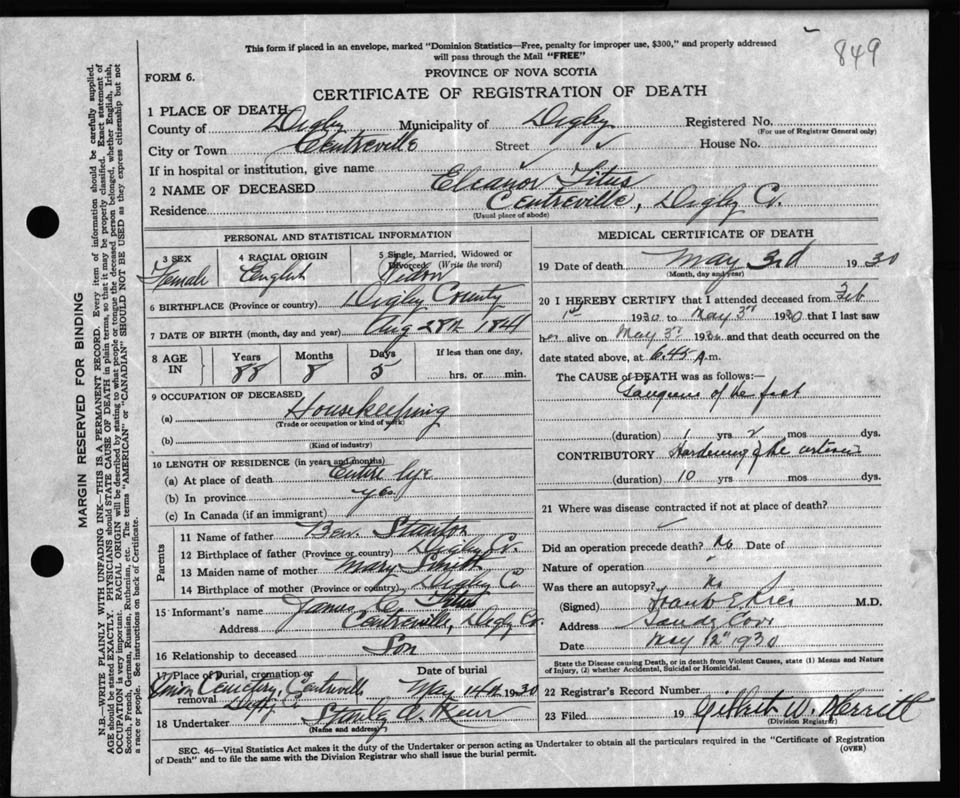 849
This form if placed in an envelope, marked "Dominion Statistics—Free, penalty for improper use, $300," and properly addressed
will pass through the Mail "FREE"
FORM 6.
PROVINCE OF NOVA SCOTIA
CERTIFICATE OF REGISTRATION OF DEATH
1 PLACE OF DEATH
County of Digby Municipality of Digby Registered No.
(For use of Registrar General only)
City or Town Centreville Street House No.
If in hospital or institution, give name
2 NAME OF DECEASED Eleanor Titus
Residence Centreville, Digby Co.
(Usual place of abode)
PERSONAL AND STATISTICAL INFORMATION
3 SEX Female
4 RACIAL ORIGIN English
5 Single, Married, Widowed or
Divorced (Write the word)
6 BIRTHPLACE (Province or country) Digby County
7 DATE OF BIRTH (month, day and year) Aug 28th 1841
8 AGE IN Years 88 Months 8 Days 5 If less than one day, hrs. or min.
9 OCCUPATION OF DECEASED
(a) Housekeeping
(Trade or occupation or kind of work)
(b)
(Kind of industry)
10 LENGTH OF RESIDENCE (in years and months)
(a) At place of death Entire life
(b) In province yes
(c) In Canada (if an immigrant)
Parents
11 Name of father Ben. Stanton
12 Birthplace of father (Province or country) Digby Co.
13 Maiden name of mother Mary Smith
14 Birthplace of mother (Province or country) Digby Co
15 Informant's name James C. Titus
Address Centreville, Digby Co.
16 Relationship to deceased Son
17 Place of burial, cremation or
removal Union Cemetery, Centreville
Date of burial May 14th 1930
18 Undertaker
(Name and address)
MEDICAL CERTIFICATE OF DEATH
19 Date of death May 3rd 1930
(Month, day and year)
20 I HEREBY CERTIFY that I attended deceased from Feb
1st 1930 to May 3rd 1930 that I last saw
her alive on May 3rd 1930 and that death occurred on the
date stated above, at 6.45 A.m.
The CAUSE of DEATH was as follows:—
Gangrene of the foot
(duration) 1 yrs 2 mos dys.
CONTRIBUTORY Hardening of the arteries
(duration) 10 yrs mos dys.
21 Where was disease contracted if not at place of death?
Did an operation precede death? No Date of
Nature of operation "
Was there an autopsy? No
(Signed) Frank E Rice M.D.
Address Sandy Cove
Date May 12th 1930
State the Disease causing Death, or in death from Violent Causes, state (1) Means and Nature
of Injury, (2) whether Accidental, Suicidal or Homicidal.
22 Registrar's Record Number
23 Filed 19 Gilbert W. Merritt
(Division Registrar)
SEC. 46—Vital Statistics Act makes it the duty of the Undertaker or person acting as Undertaker to obtain all the particulars required in the "Certificate of Registration
of Death" and to file the same with the Division Registrar who shall issue the burial permit.
(OVER)
MARGIN RESERVED FOR BINDING
N.B.—WRITE PLAINLY WITH UNFADING INK—THIS IS A PERMANENT RECORD. Every item of information should be carefully supplied.
AGE should be stated EXACTLY. PHYSICIANS should STATE CAUSE OF DEATH in plain terms, so that it may be properly classified. Exact statement of
OCCUPATION is very important. RACIAL ORIGIN will be described by stating to what people or tongue the deceased person belonged, whether English, Irish,
Scotch, French, German, Russian, Ruthenian, etc. The terms "AMERICAN" or "CANADIAN" SHOULD NOT BE USED as they express citizenship but not
a race or people. See instructions on back of Certificate.